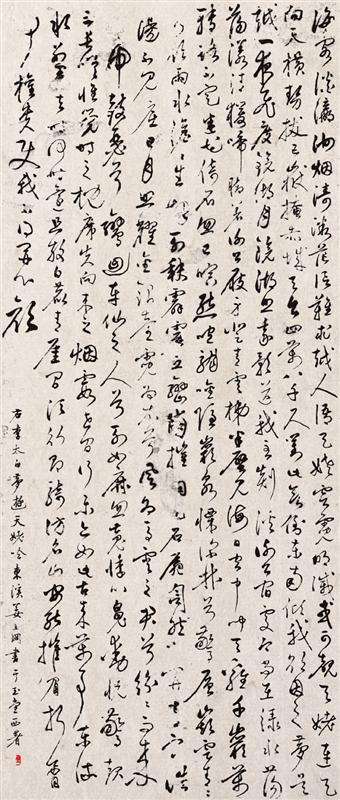 海客談瀛洲烟濤微茫信難求越人語天姥雲霓明滅或可覩天姥連天
向天橫勢拔五嶽掩赤城天台四萬八千丈對此欲倒東南傾我欲因之夢吳
越一夜飛度鏡湖月鏡湖月照我影送我至剡溪謝公宿處今尚在淥水蕩
蕩漾清猿啼脚著謝公屐身登青雲梯半壁見海日空中聞天雞千巖萬
轉路不定迷花倚石忽已暝熊咆龍吟殷巖泉慄深林兮驚層巔雲青青
兮欲雨水澹澹兮生煙列缺霹靂丘巒崩摧洞天石扉訇然中開青冥浩
蕩不見底日月照耀金銀臺霓為衣兮風為馬雲之君兮紛紛而來下
虎鼓瑟兮鸞迴車仙之人兮列如麻忽魂悸以魄動怳驚起
而長嗟惟覺時之枕席失向來之烟霞世間行樂亦如此古來萬事東流
水別君去兮何時還且放白鹿青崖間須行即騎訪名山安能摧眉折腰
事權貴使我不得開心顏
右李太白夢遊天姥吟東溪姜立綱書于玉堂西署